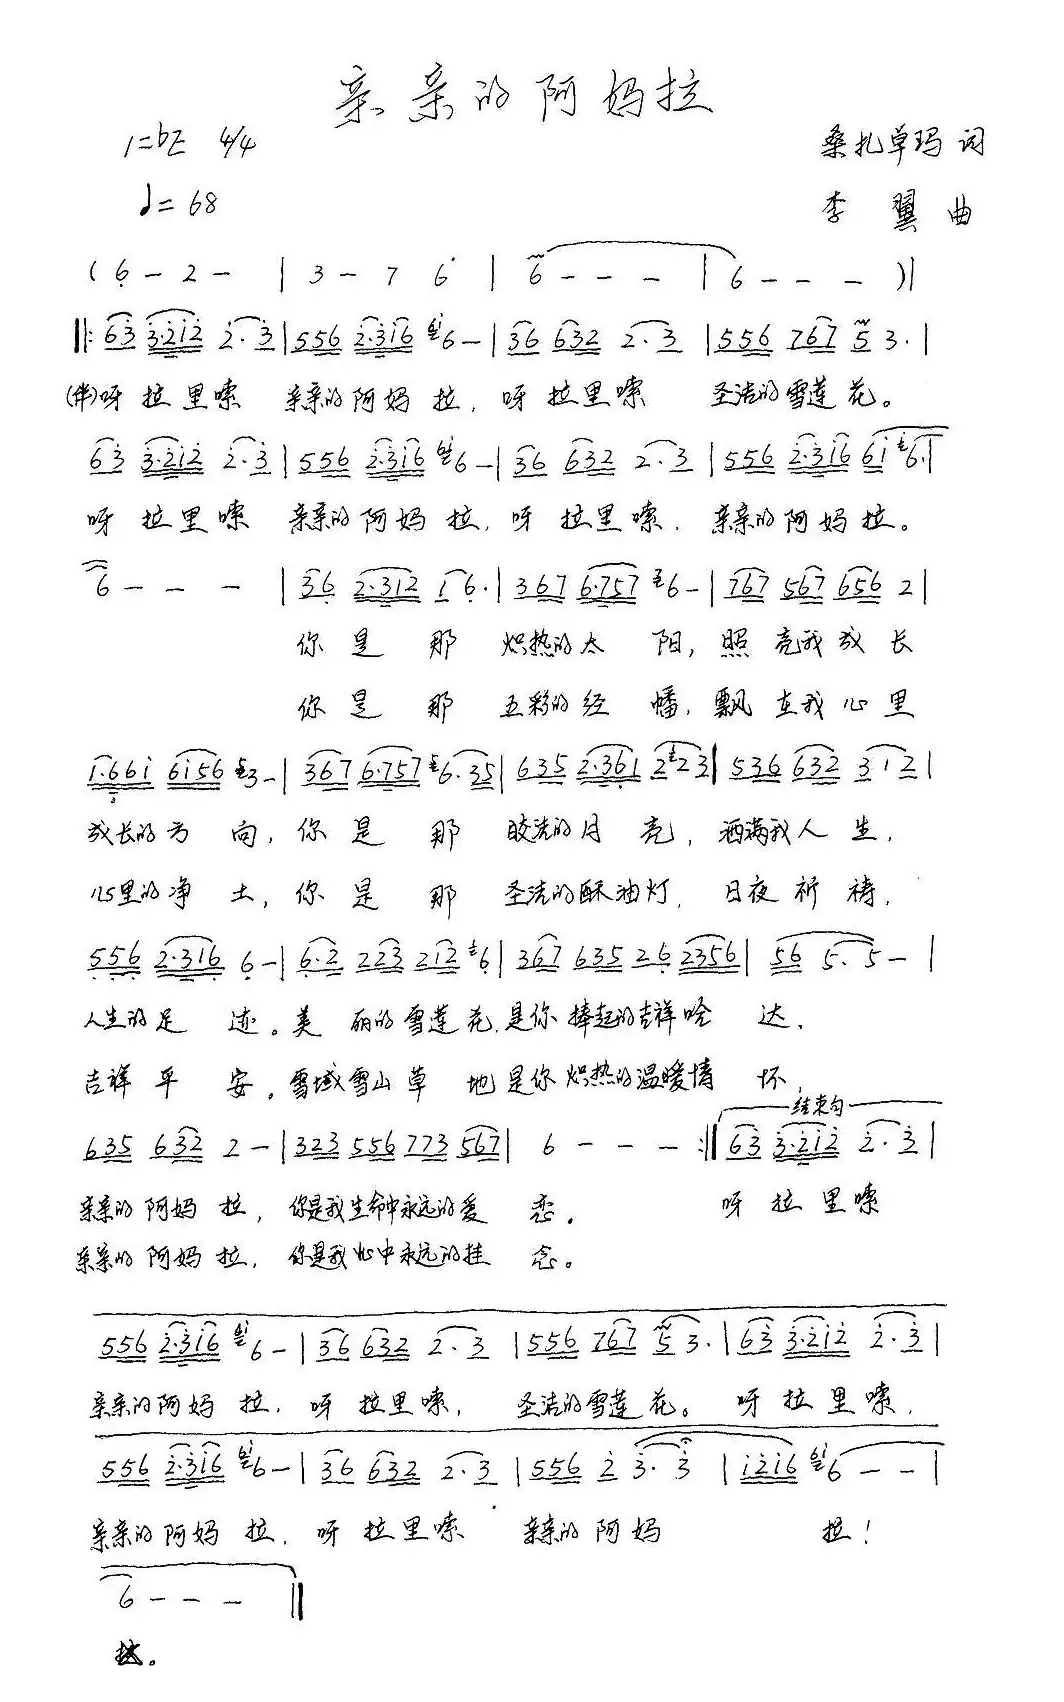 亲亲的阿妈拉
1=bE 4/4
桑扎草玛 词
♩=68
李 翼 曲
( 6 - 2 - | 3 - 7 6 | 6 - - - | 6 - - - )|
‖: 63 3·212 2·3 | 556 2·316 6- | 36 632 2·3 | 556 767 5 3· |
(伴)呀 拉里嗦 亲亲的阿妈 拉, 呀拉里嗦 圣洁的雪莲花。
63 3·212 2·3 | 556 2·316 6- | 36 632 2·3 | 556 2·316 61 6· |
呀 拉里嗦 亲亲的阿妈 拉, 呀 拉里嗦, 亲亲的阿妈拉。
6 - - - | 36 2·312 1 6· | 367 6·757 6- | 767 567 656 2 |
你 是 那 炽热的太 阳, 照 亮我成长
你 是 那 五彩的经 幡, 飘 在我心里
1·661 6156 3- | 367 6·757 6·35 | 635 2·361 223 | 536 632 312 |
成长的方 向, 你 是 那 皎洁的月 亮, 洒满我人 生,
心里的净 土, 你 是 那 圣洁的酥油灯, 日夜祈 祷,
556 2·316 6- | 6·2 223 212 6 | 367 635 26 2356 | 56 5· 5- |
人生的足 迹。美 丽的雪莲花,是你捧起的吉祥哈 达,
吉祥平 安。雪域雪山草 地是你炽热的温暖情 怀,
结束句
635 632 2- | 323 556 773 567 | 6 - - - :‖ 63 3·212 2·3 |
亲亲的阿妈 拉, 你是我生命中永远的爱 恋。 呀 拉里嗦
亲亲的阿妈 拉, 你是我心中永远的挂 念。
556 2·316 6- | 36 632 2·3 | 556 767 5 3· | 63 3·212 2·3 |
亲亲的阿妈 拉, 呀 拉里嗦, 圣洁的雪莲花。 呀 拉里嗦,
556 2·316 6- | 36 632 2·3 | 556 2 3· 3 | 1216 6 - - |
亲亲的阿妈 拉, 呀 拉里嗦 亲亲的阿妈 拉!
6 - - - ‖
拉。